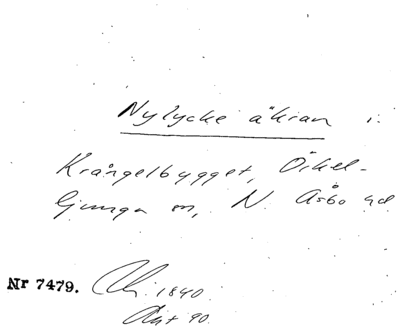 Nylycke åkran i
Krångelbygget, Örkel-
ljunga sn, N. Åsbo hd
Nr 7479. 1840
Akt 90